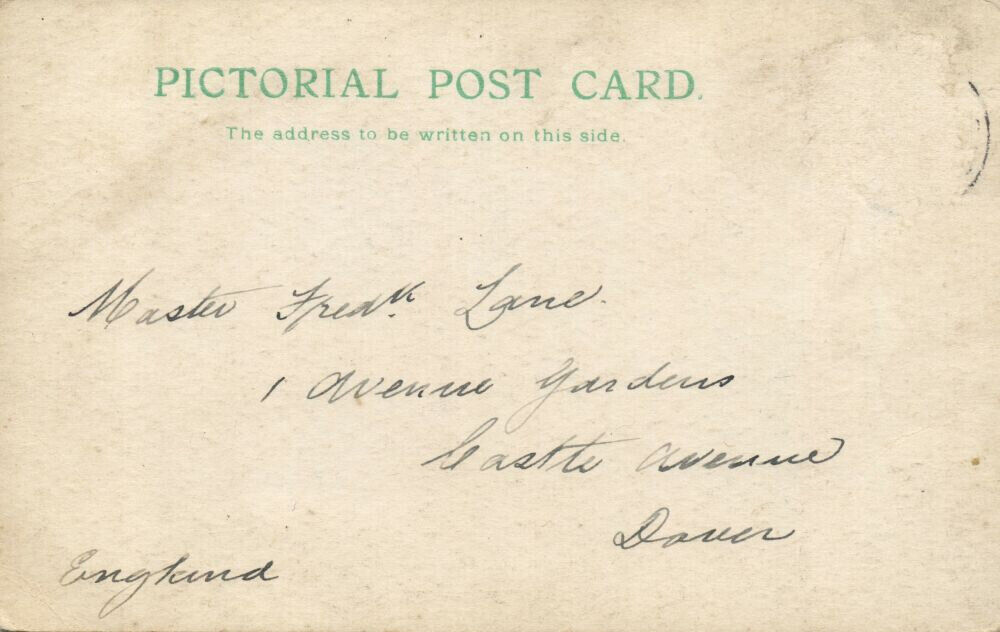 PICTORIAL POST CARD.
The address to be written on this side.
Master Fredk. Lane.
1 Avenue Gardens
Castle Avenue
Dover
England